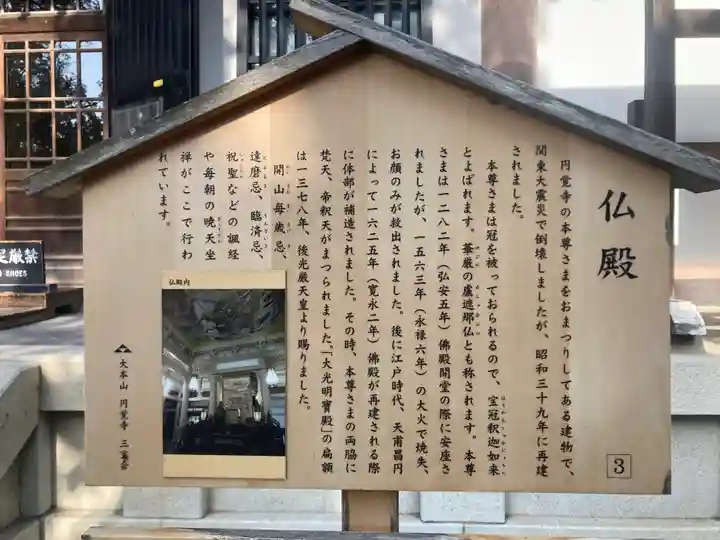 仏殿
円覚寺の本尊さまをおまつりしてある建物で、
関東大震災で倒壊しましたが、昭和三十九年に再建
されました。
本尊さまは冠を被っておられるので、宝冠釈迦如来
とよばれます。華厳の盧遮那仏とも称されます。本尊
さまは一二八二年（弘安五年）佛殿開堂の際に安座さ
れましたが、一五六三年（永禄六年）の大火で焼失、
お顔のみが救出されました。後に江戸時代、天甫昌円
によって一六二五年（寛永二年）佛殿が再建される際
に体部が補造されました。その時、本尊さまの両脇に
梵天、帝釈天がまつられました。「大光明寳殿」の扁額
は一三七八年、後光厳天皇より賜りました。
開山毎歳忌、
達磨忌、臨済忌、
祝聖などの諷経
や毎朝の暁天坐
禅がここで行わ
れています。
仏殿内
大本山 円覚寺 三宝会
3
足厳禁
SHOES